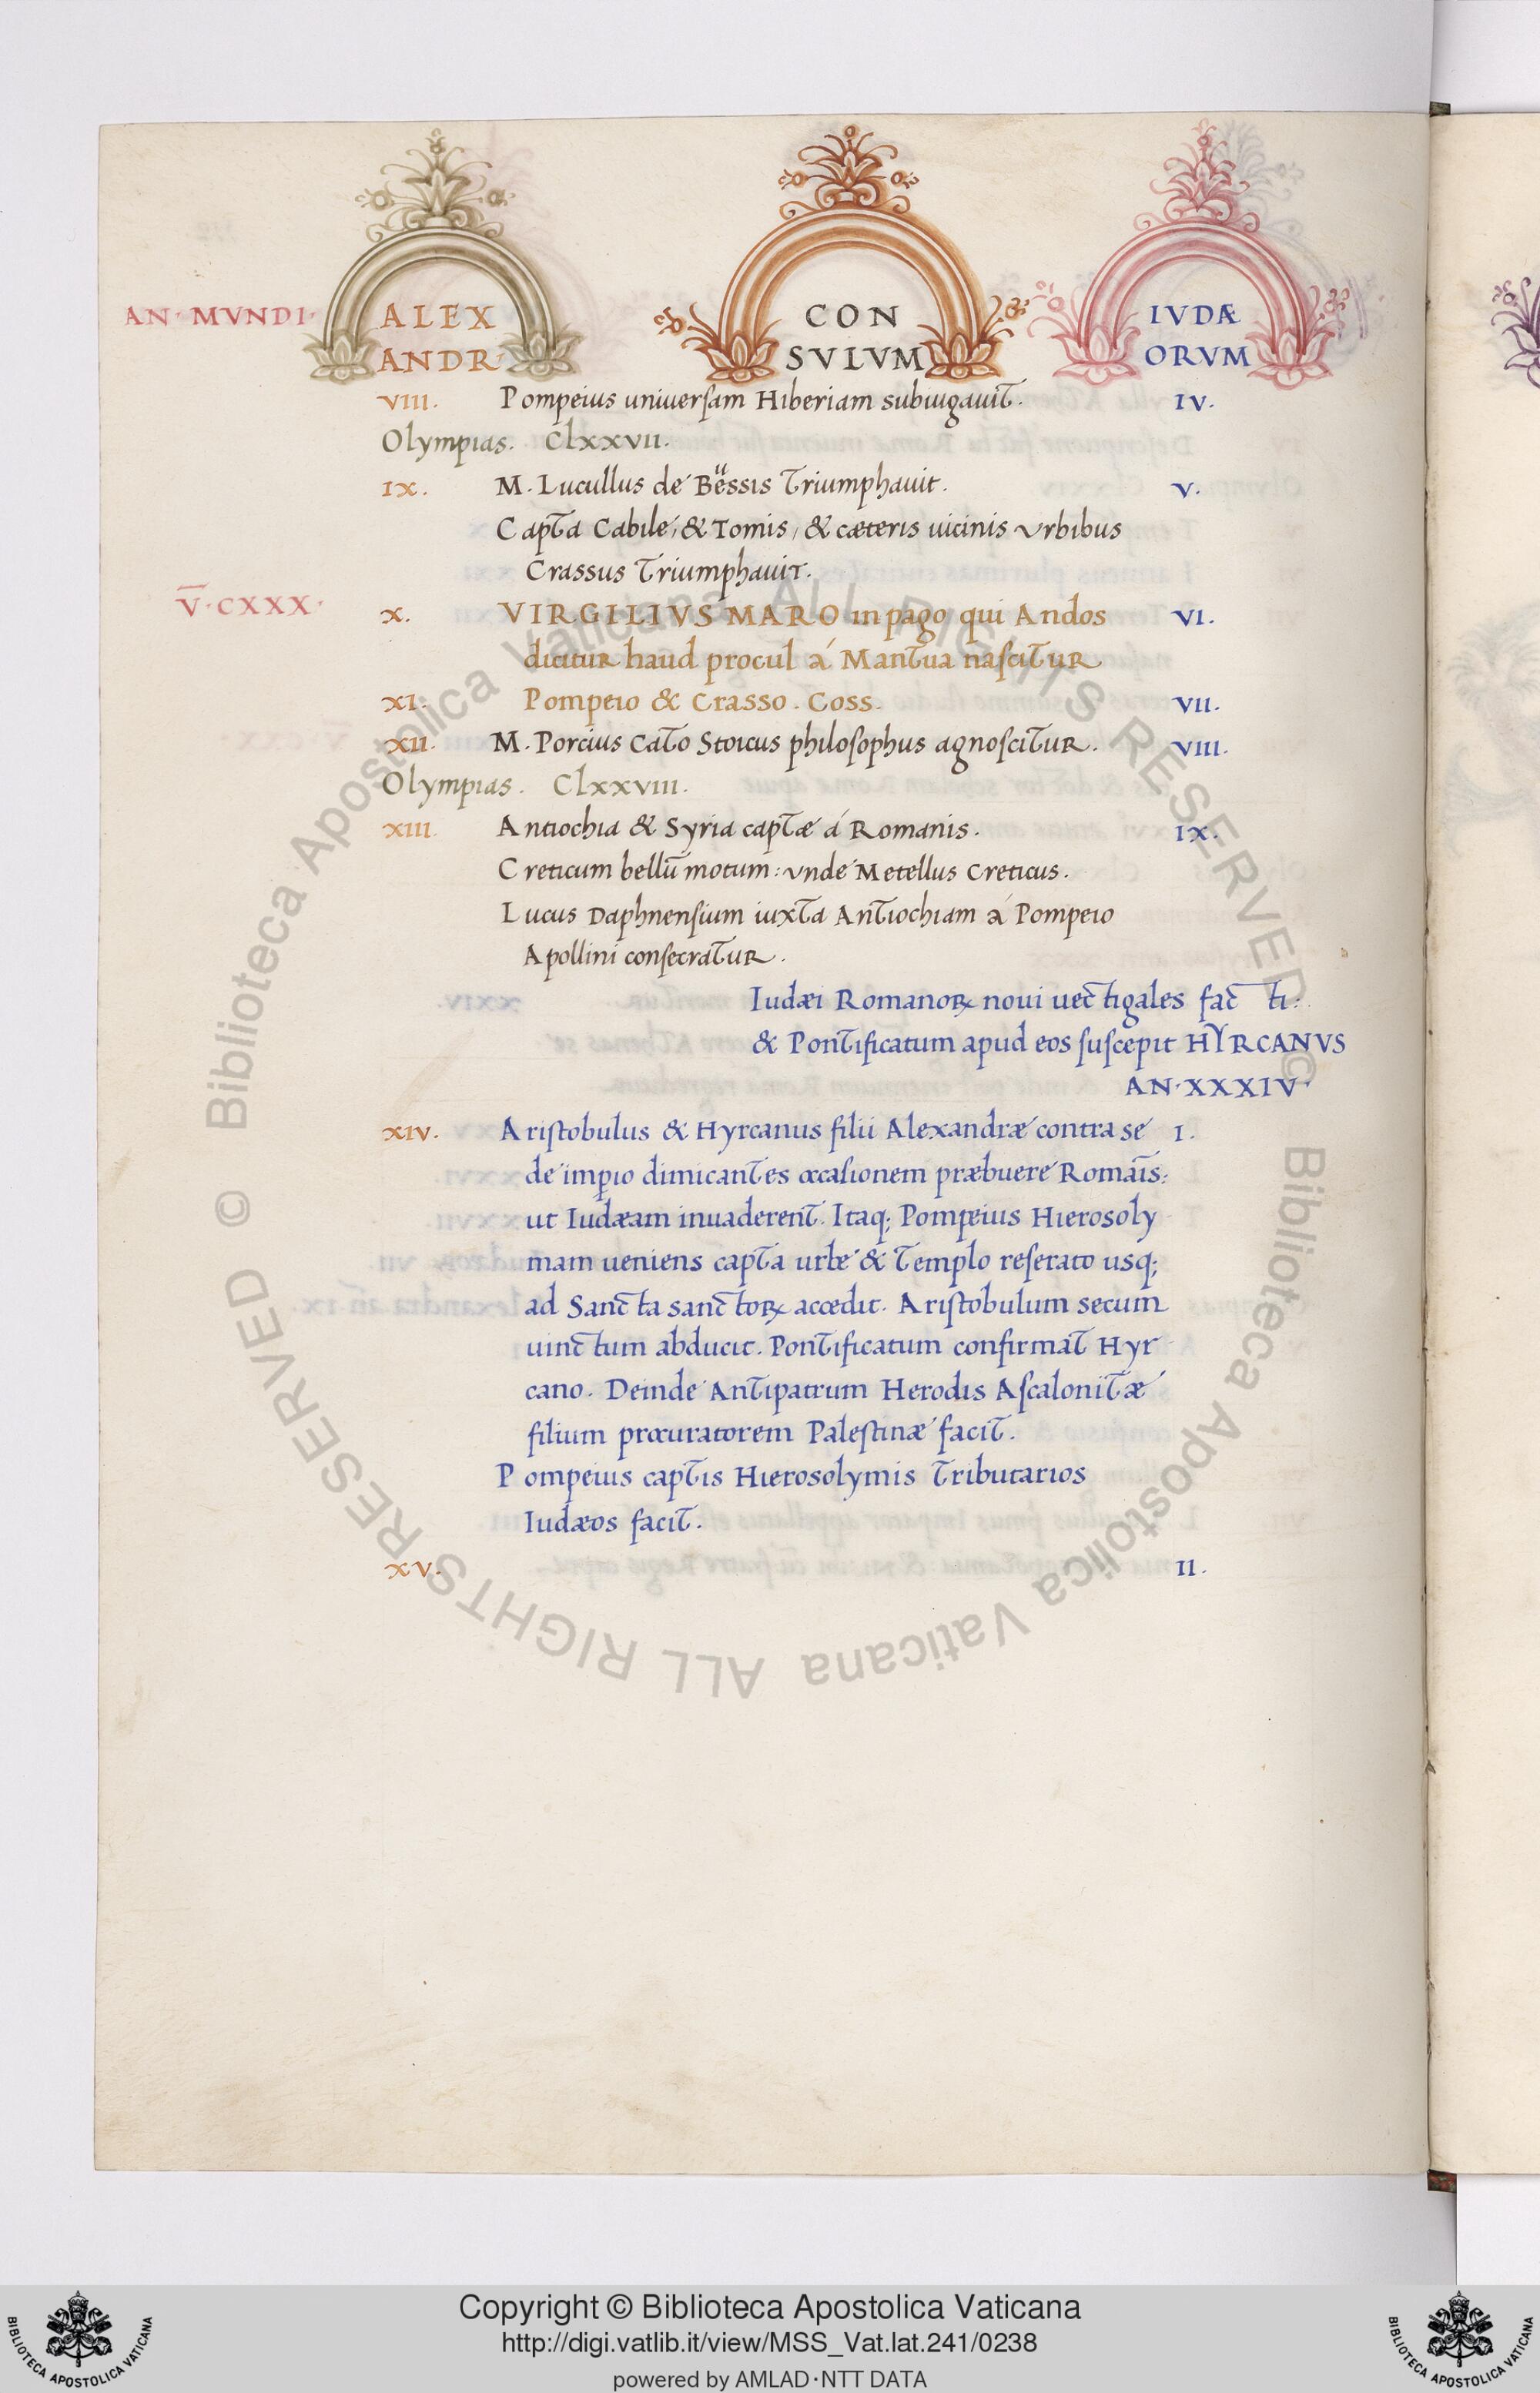 AN · MVNDI · ALEX ANDR · CON SVLVM IVDÆ ORVM
VIII. Pompeius uniuersam Hiberiam subiugauit. IV.
Olympias. Clxxvii.
IX. M. Lucullus de Bessis Triumphauit. V.
Capta Cabile, & Tomis, & cæteris uicinis Vrbibus
Crassus Triumphauit.
V̅ · CXXX · X. VIRGILIVS MARO in pago qui Andos VI.
dicitur haud procul á Mantua nascitur
XI. Pompeio & Crasso. Coss. VII.
XII. M. Porcius Cato Stoicus philosophus agnoscitur. VIII.
Olympias. Clxxviii.
XIII. Antiochia & Syria captæ á Romanis. IX.
Creticum bellū motum: vnde Metellus Creticus.
Lucus Daphnensium iuxta Antiochiam á Pompeio
Apollini consecratur.
Iudæi Romanoꝝ noui uectigales facti:
& Pontificatum apud eos suscepit HYRCANVS
AN · XXXIV ·
XIV. Aristobulus & Hyrcanus filii Alexandræ contra se I.
de imp̲io dimicantes occasionem præbuere Romāis:
ut Iudæam inuaderent. Itaq; Pompeius Hierosoly
mam ueniens capta urbe & Templo reserato usq;
ad Sancta sanctoꝝ accedit. Aristobulum secum
uinctum abducit. Pontificatum confirmat Hyr
cano. Deinde Antipatrum Herodis Ascalonitæ
filium procuratorem Palestinæ facit.
Pompeius captis Hierosolymis Tributarios
Iudæos facit.
XV. II.
© Biblioteca Apostolica Vaticana ALL RIGHTS RESERVED © Biblioteca Apostolica Vaticana ALL RIGHTS RESERVED
Copyright © Biblioteca Apostolica Vaticana
http://digi.vatlib.it/view/MSS_Vat.lat.241/0238
powered by AMLAD · NTT DATA
BIBLIOTECA APOSTOLICA VATICANA
BIBLIOTECA APOSTOLICA VATICANA